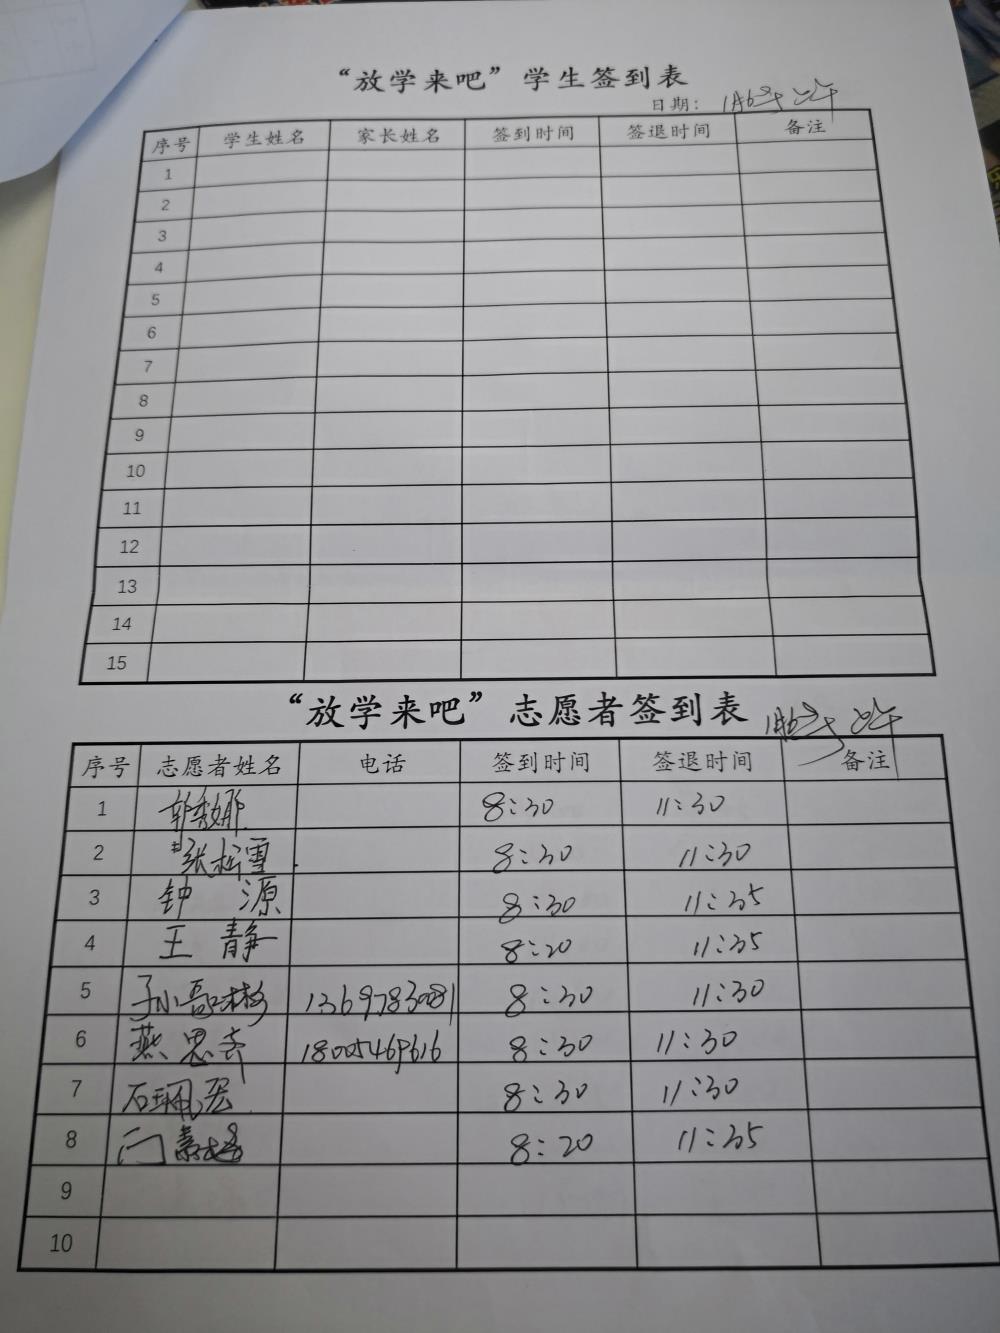 “放学来吧”学生签到表
日期：
序号 学生姓名 家长姓名 签到时间 签退时间 备注
1
2
3
4
5
6
7
8
9
10
11
12
13
14
15
“放学来吧”志愿者签到表
序号 志愿者姓名 电话 签到时间 签退时间 备注
1 郭秀娜 8:30 11:30
2 张松雪 8:30 11:30
3 钟源 8:30 11:35
4 王静 8:20 11:35
5 1369783081 8:30 11:30
6 燕思 18005469616 8:30 11:30
7 石珮 8:30 11:30
8 门 8:20 11:35
9
10